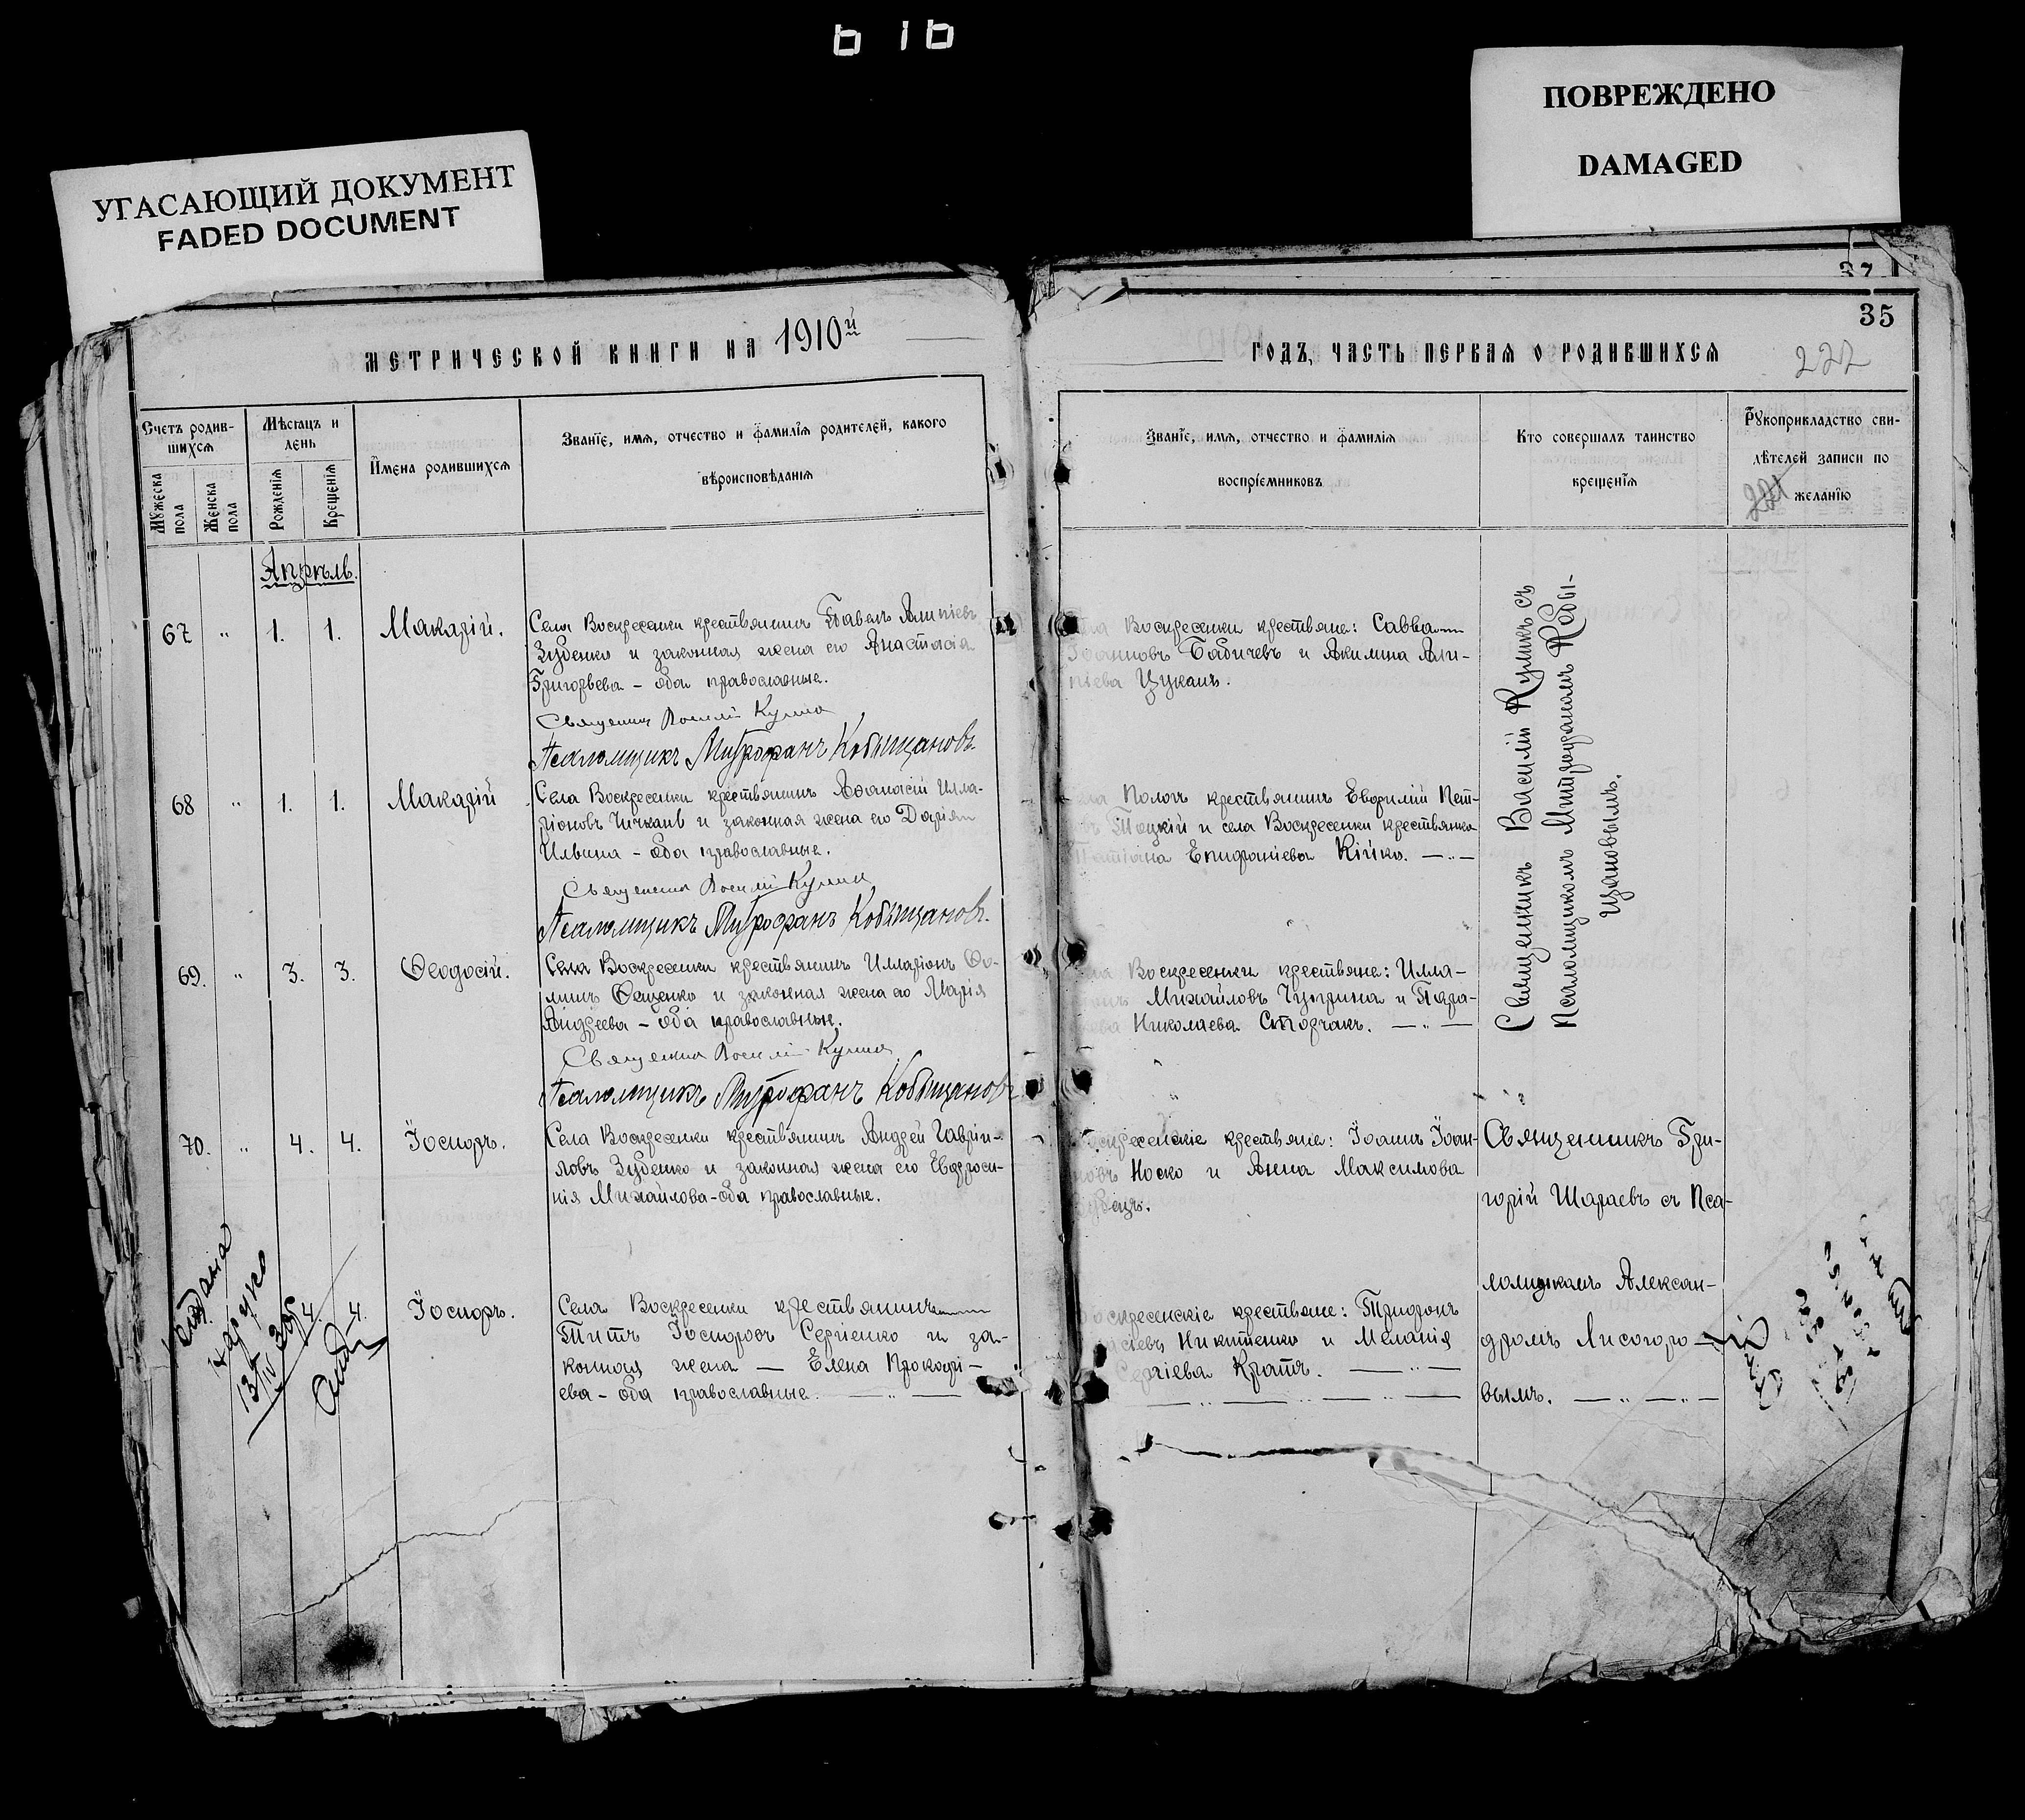 616
ПОВРЕЖДЕНО
DAMAGED
УГАСАЮЩИЙ ДОКУМЕНТ
FADED DOCUMENT
37
35
МЕТРИЧЕСКОЙ КНИГИ НА 1910й
ГОДЪ, ЧАСТЬ ПЕРВАЯ О РОДИВШИХСЯ
222
Счетъ родив-
шихся
Мужеска пола
Женска пола
Мѣсяцъ и
день
Рожденія
Крещенія
Имена родившихся
Званіе, имя, отчество и фамилія родителей, какого
вѣроисповѣданія
Званіе, имя, отчество и фамилія
воспріемниковъ
Кто совершалъ таинство
крещенія
Рукоприкладство сви-
дѣтелей записи по
желанію
Апрѣль.
67 " 1. 1. Макарій.
Села Воскресенки крестьянинъ Павелъ Алипіевъ
Зубенко и законная жена его Анастасія
Григорьева – оба православные.
Священник Василій Кулик
Псаломщикъ Митрофанъ Кобыщановъ
Воскресенки крестьяне: Савва
Іоанновъ Бабичевъ и Акилина Али-
піева Цуканъ.
Священникъ Василій Куликъ съ
Псаломщикомъ Митрофаномъ Кобы-
щановымъ.
68 " 1. 1. Макарій
Села Воскресенки крестьянинъ Аѳанасій Илла-
ріоновъ Чичканъ и законная жена его Дарія
Ильина – оба православные.
Священник Василій Кулик
Псаломщикъ Митрофанъ Кобыщановъ.
Пологъ крестьянинъ Евфимій Пет-
Тоцкій и села Воскресенки крестьянка
Татіана Епифаніева Кійко. — " —
69. " 3. 3. Ѳеодосій.
Села Воскресенки крестьянинъ Илларіонъ Ѳо-
минъ Ѳещенко и законная жена его Марія
Андреева – оба православные.
Священник Василій Кулик
Псаломщикъ Митрофанъ Кобыщановъ
Воскресенки крестьяне: Илла-
Михайловъ Чугрина и Пара-
Николаева Сторчакъ. — " —
70. " 4. 4. Іосифъ.
Села Воскресенки крестьянинъ Андрей Гаврии-
ловъ Зубенко и законная жена его Евфроси-
нія Михайлова – оба православные.
Воскресенскіе крестьяне: Іоаннъ Іоан-
новъ Носко и Анна Максимова
Священникъ Гри-
горій Шараевъ съ Пса-
ломщикомъ Алексан-
дромъ Лисогоро-
вымъ. — " — " —
4. 4. Іосифъ.
Села Воскресенки крестьянинъ
Титъ Іосифовъ Сергіенко и за-
конная жена — Елена Прокофі-
ева – оба православные. — " —
Воскресенскіе крестьяне: Трифонъ
Никитенко и Меланія
Сергіева Кратъ. — " —
— " — " — " —